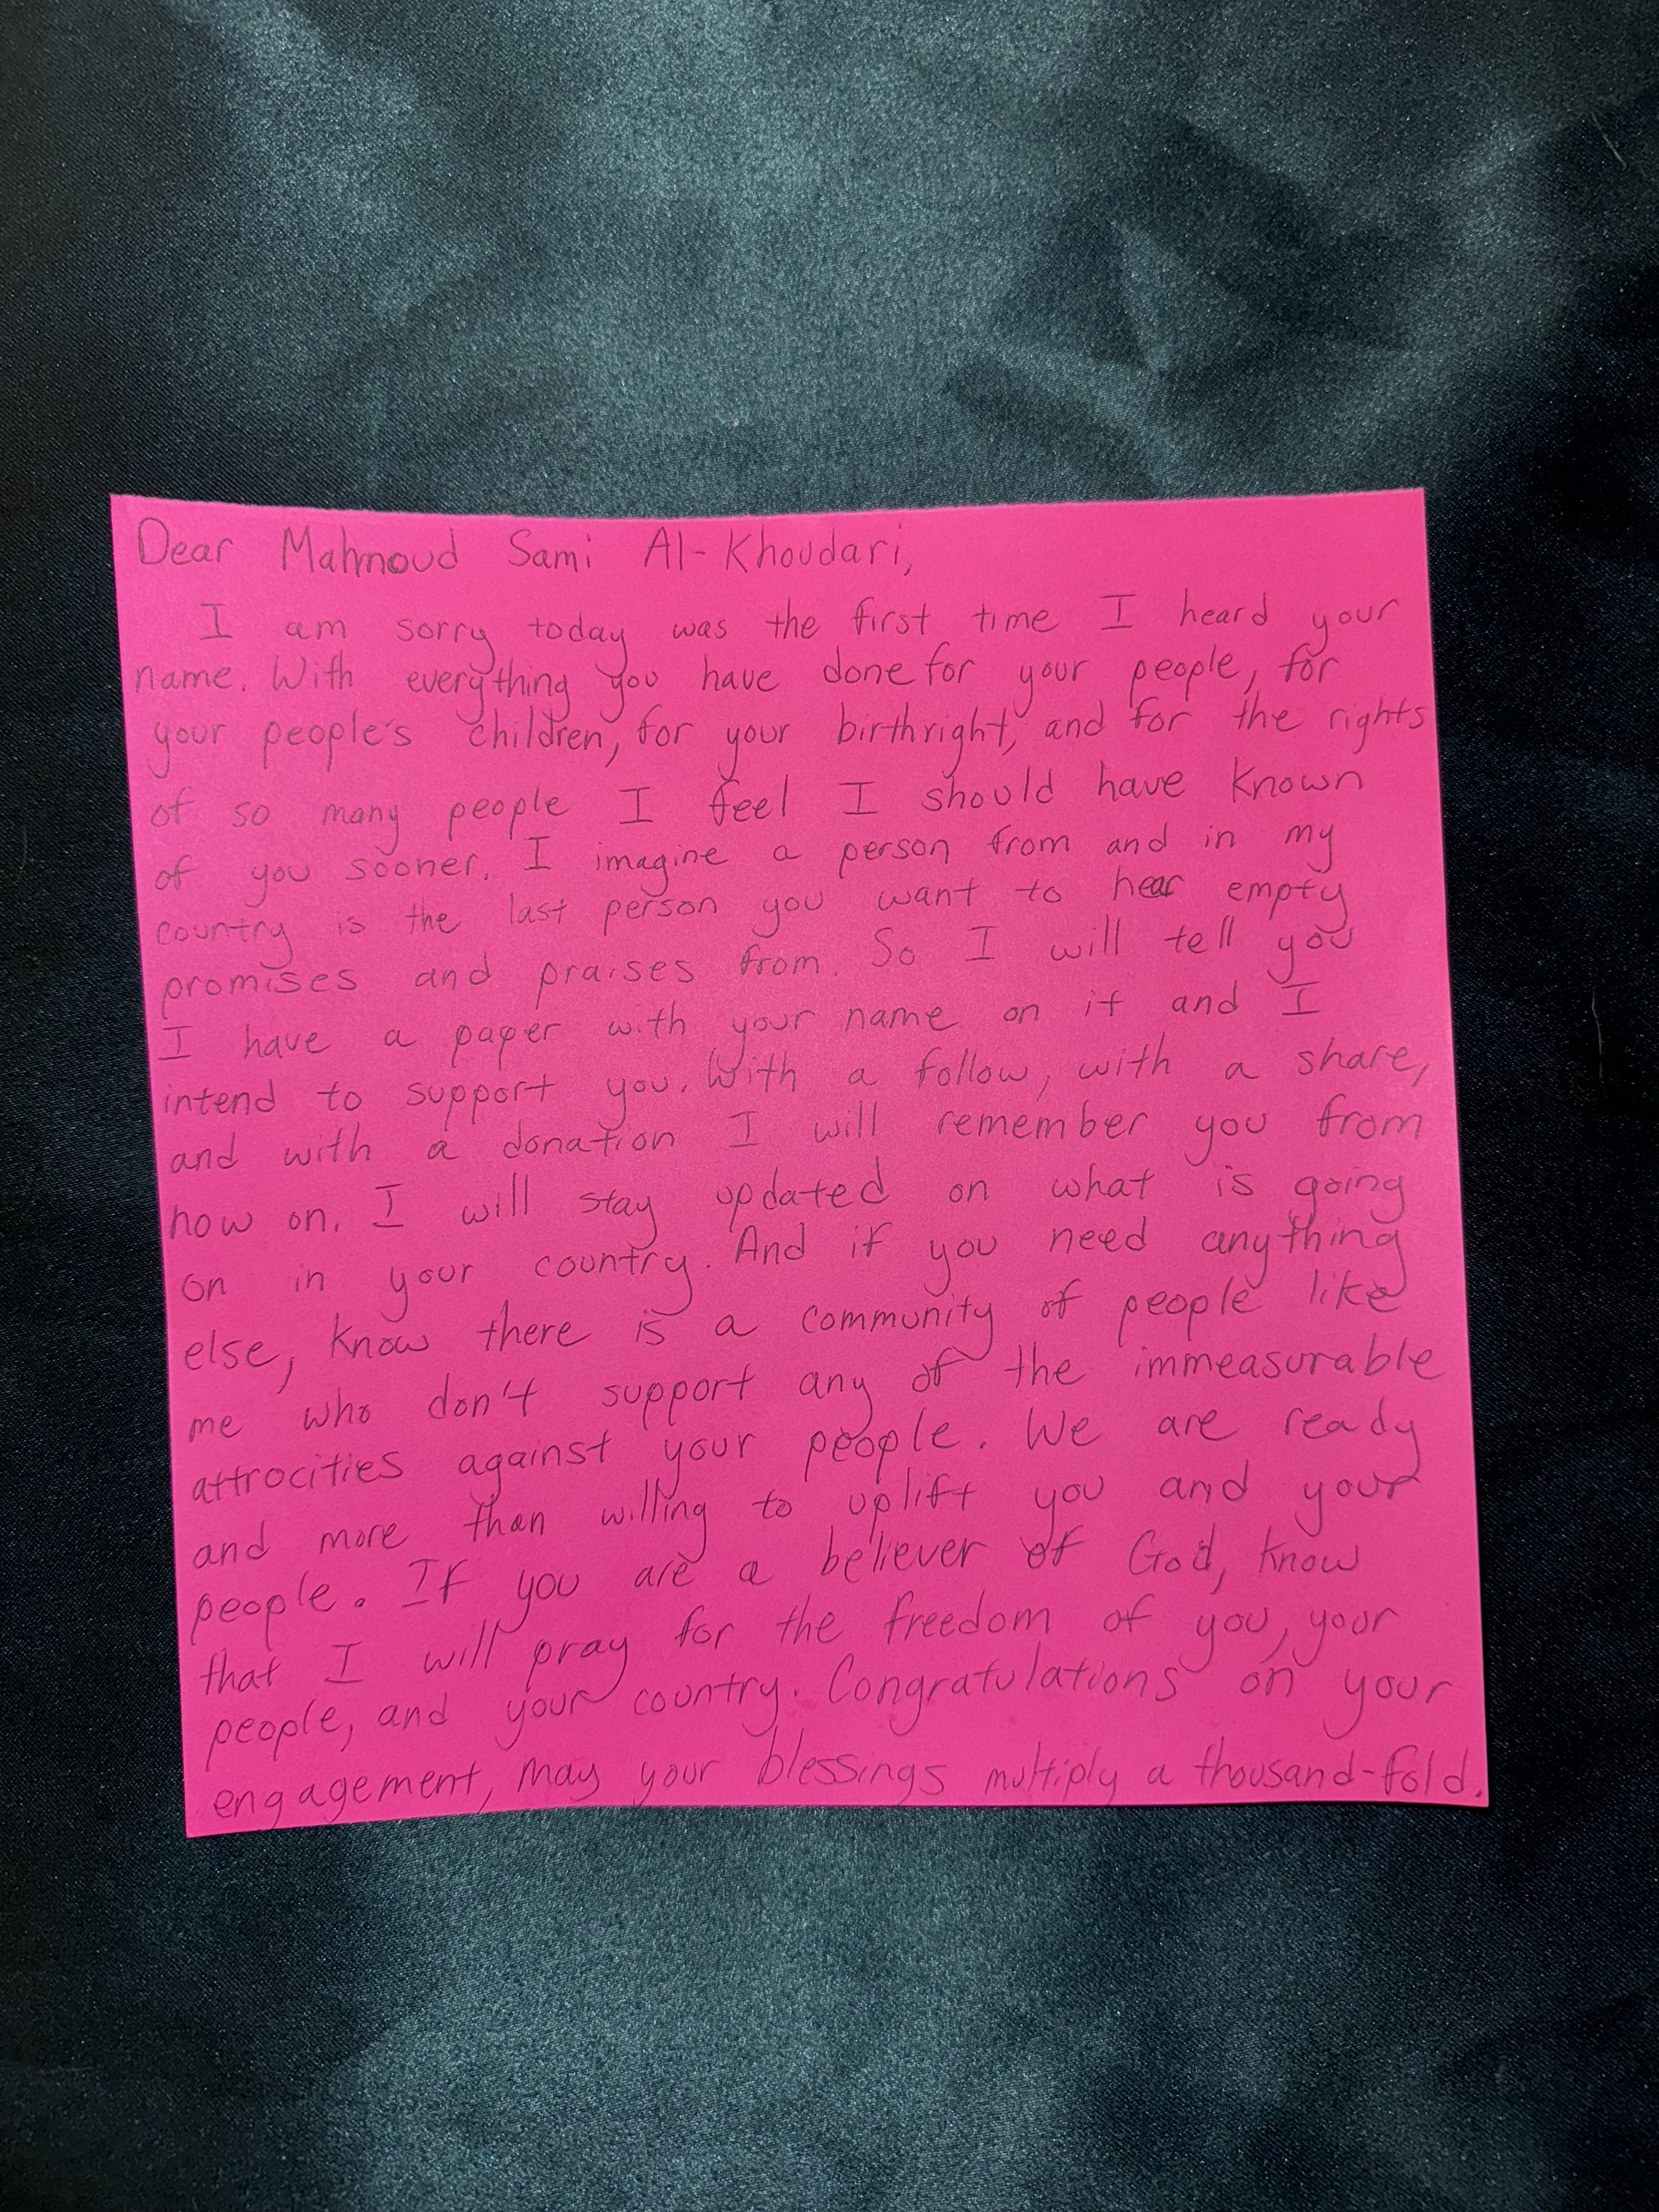 Dear Mahmoud Sami Al-Khoudari,
I am sorry today was the first time I heard your
name. With everything you have done for your people, for
your people's children, for your birthright, and for the rights
of so many people I feel I should have known
of you sooner. I imagine a person from and in my
country is the last person you want to hear empty
promises and praises from. So I will tell you
I have a paper with your name on it and I
intend to support you. With a follow, with a share,
and with a donation I will remember you from
now on. I will stay updated on what is going
on in your country. And if you need anything
else, know there is a community of people like
me who don't support any of the immeasurable
attrocities against your people. We are ready
and more than willing to uplift you and your
people. If you are a believer of God, know
that I will pray for the freedom of you, your
people, and your country. Congratulations on your
engagement, may your blessings multiply a thousand-fold.